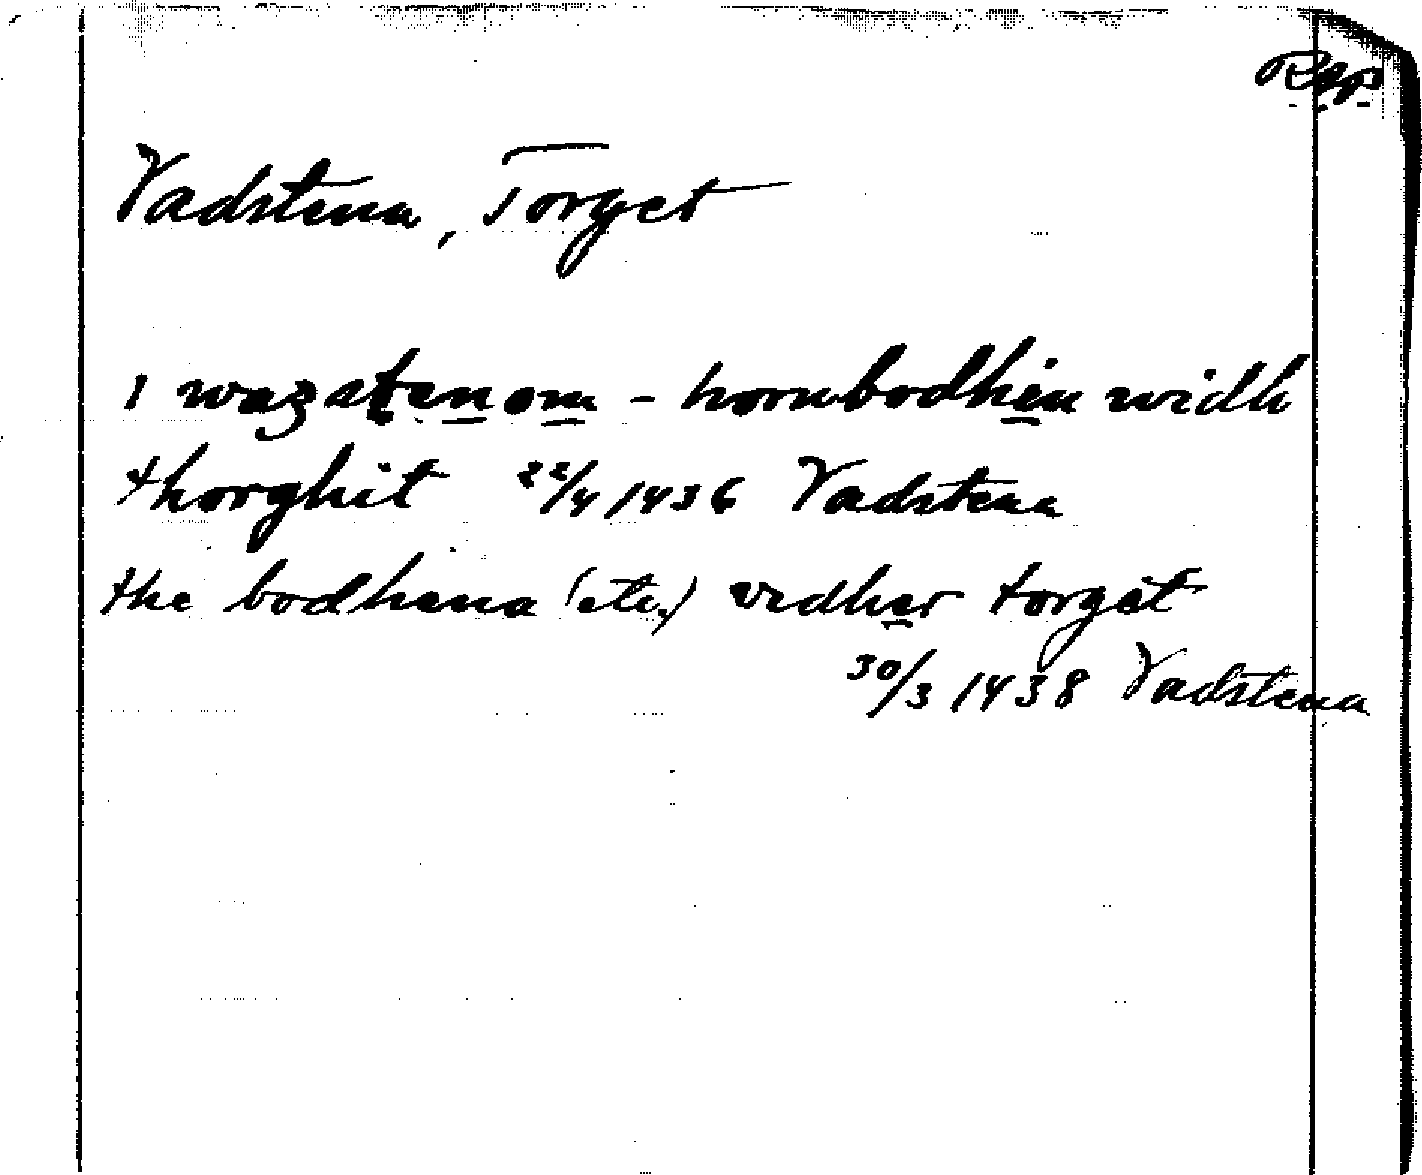 Rep
Vadstena, Torget
I wazstenom - hornbodhin widh
thorghit 22/4 1436 Vadstena
the bodhena (etc.) vedher torgit
30/3 1438 Vadstena